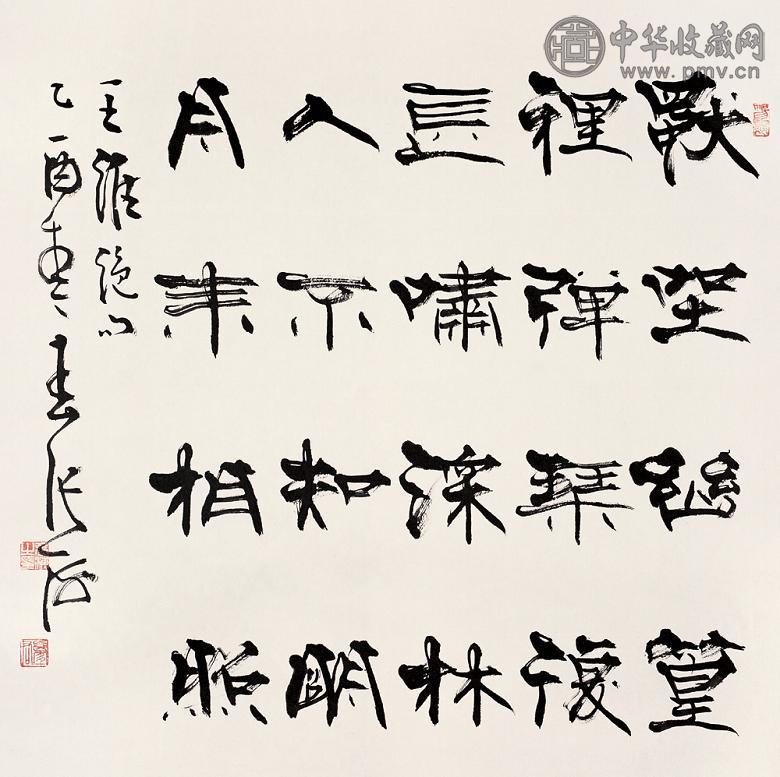 中华收藏网
www.pmv.cn
獨坐幽篁
裡彈琴復
長嘯深林
人不知明
月来相照
王維絕句
乙酉春